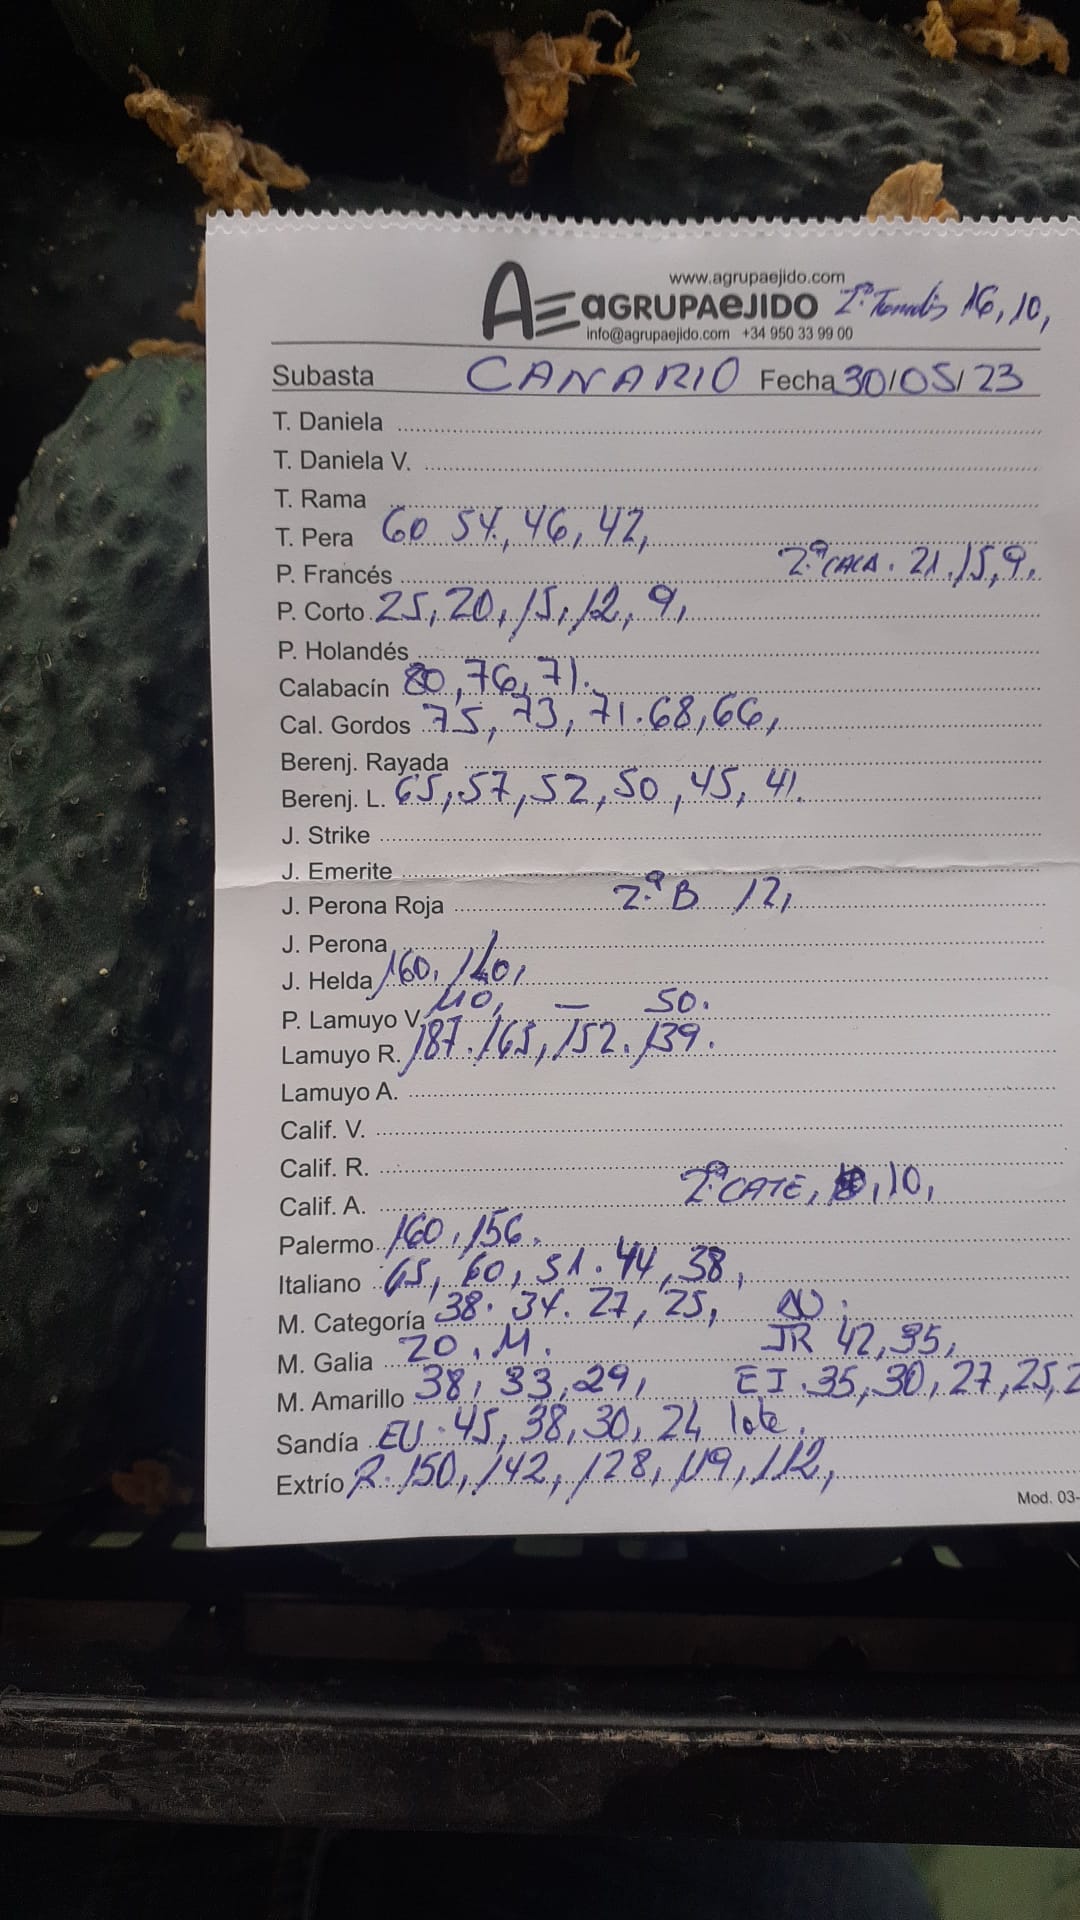 www.agrupaejido.com
AE aGRUPAeJIDO 2ª Tomates 16, 10,
info@agrupaejido.com +34 950 33 99 00
Subasta CANARIO Fecha 30/05/23
T. Daniela
T. Daniela V.
T. Rama
T. Pera 60 54, 46, 42,
P. Francés 2ª CALA. 21, 15, 9.
P. Corto 25, 20, 15, 12, 9,
P. Holandés
Calabacín 80, 76, 71.
Cal. Gordos 75, 73, 71. 68, 66,
Berenj. Rayada
Berenj. L. 65, 57, 52, 50, 45, 41.
J. Strike
J. Emerite
J. Perona Roja 2ª B 12,
J. Perona
J. Helda 160, 140,
P. Lamuyo V. 110, — 50.
Lamuyo R. 187. 163, 152. 139.
Lamuyo A.
Calif. V.
Calif. R.
Calif. A. 2ª CATE, 10,
Palermo 160, 156.
Italiano 65, 60, 51. 44, 38,
M. Categoría 38. 34. 27, 25,
M. Galia 20, 11. JR 42, 35,
M. Amarillo 38, 33, 29, EI. 35, 30, 27, 25, 2
Sandía EU. 45, 38, 30, 24 lote.
Extrío R. 150, 142, 128, 119, 112,
Mod. 03-